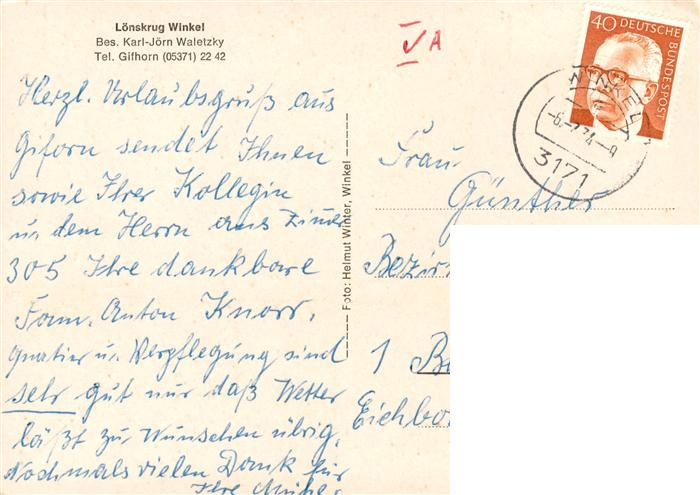 Lönskrug Winkel
Bes. Karl-Jörn Waletzky
Tel. Gifhorn (05371) 22 42
Herzl. Urlaubsgruß aus
Giforn sendet Ihnen
sowie Ihrer Kollegin
u. dem Herrn aus Zimer
305 Ihre dankbare
Fam. Anton Knorr.
Quatier u. Verpflegung sind
sehr gut nur daß Wetter
läßt zu Wünschen übrig.
Nochmals vielen Dank für
Ihre Mühe.
Foto: Helmut Winter, Winkel
V A
40 DEUTSCHE BUNDESPOST
WINKEL
-6.-7.74-9
3171
Frau
Günther
Bezir
1 Be
Eichbo